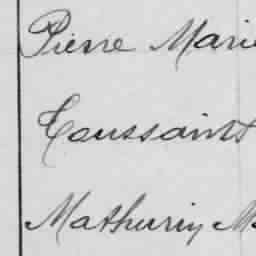 Pierre Marie
Toussaint
Mathurin M